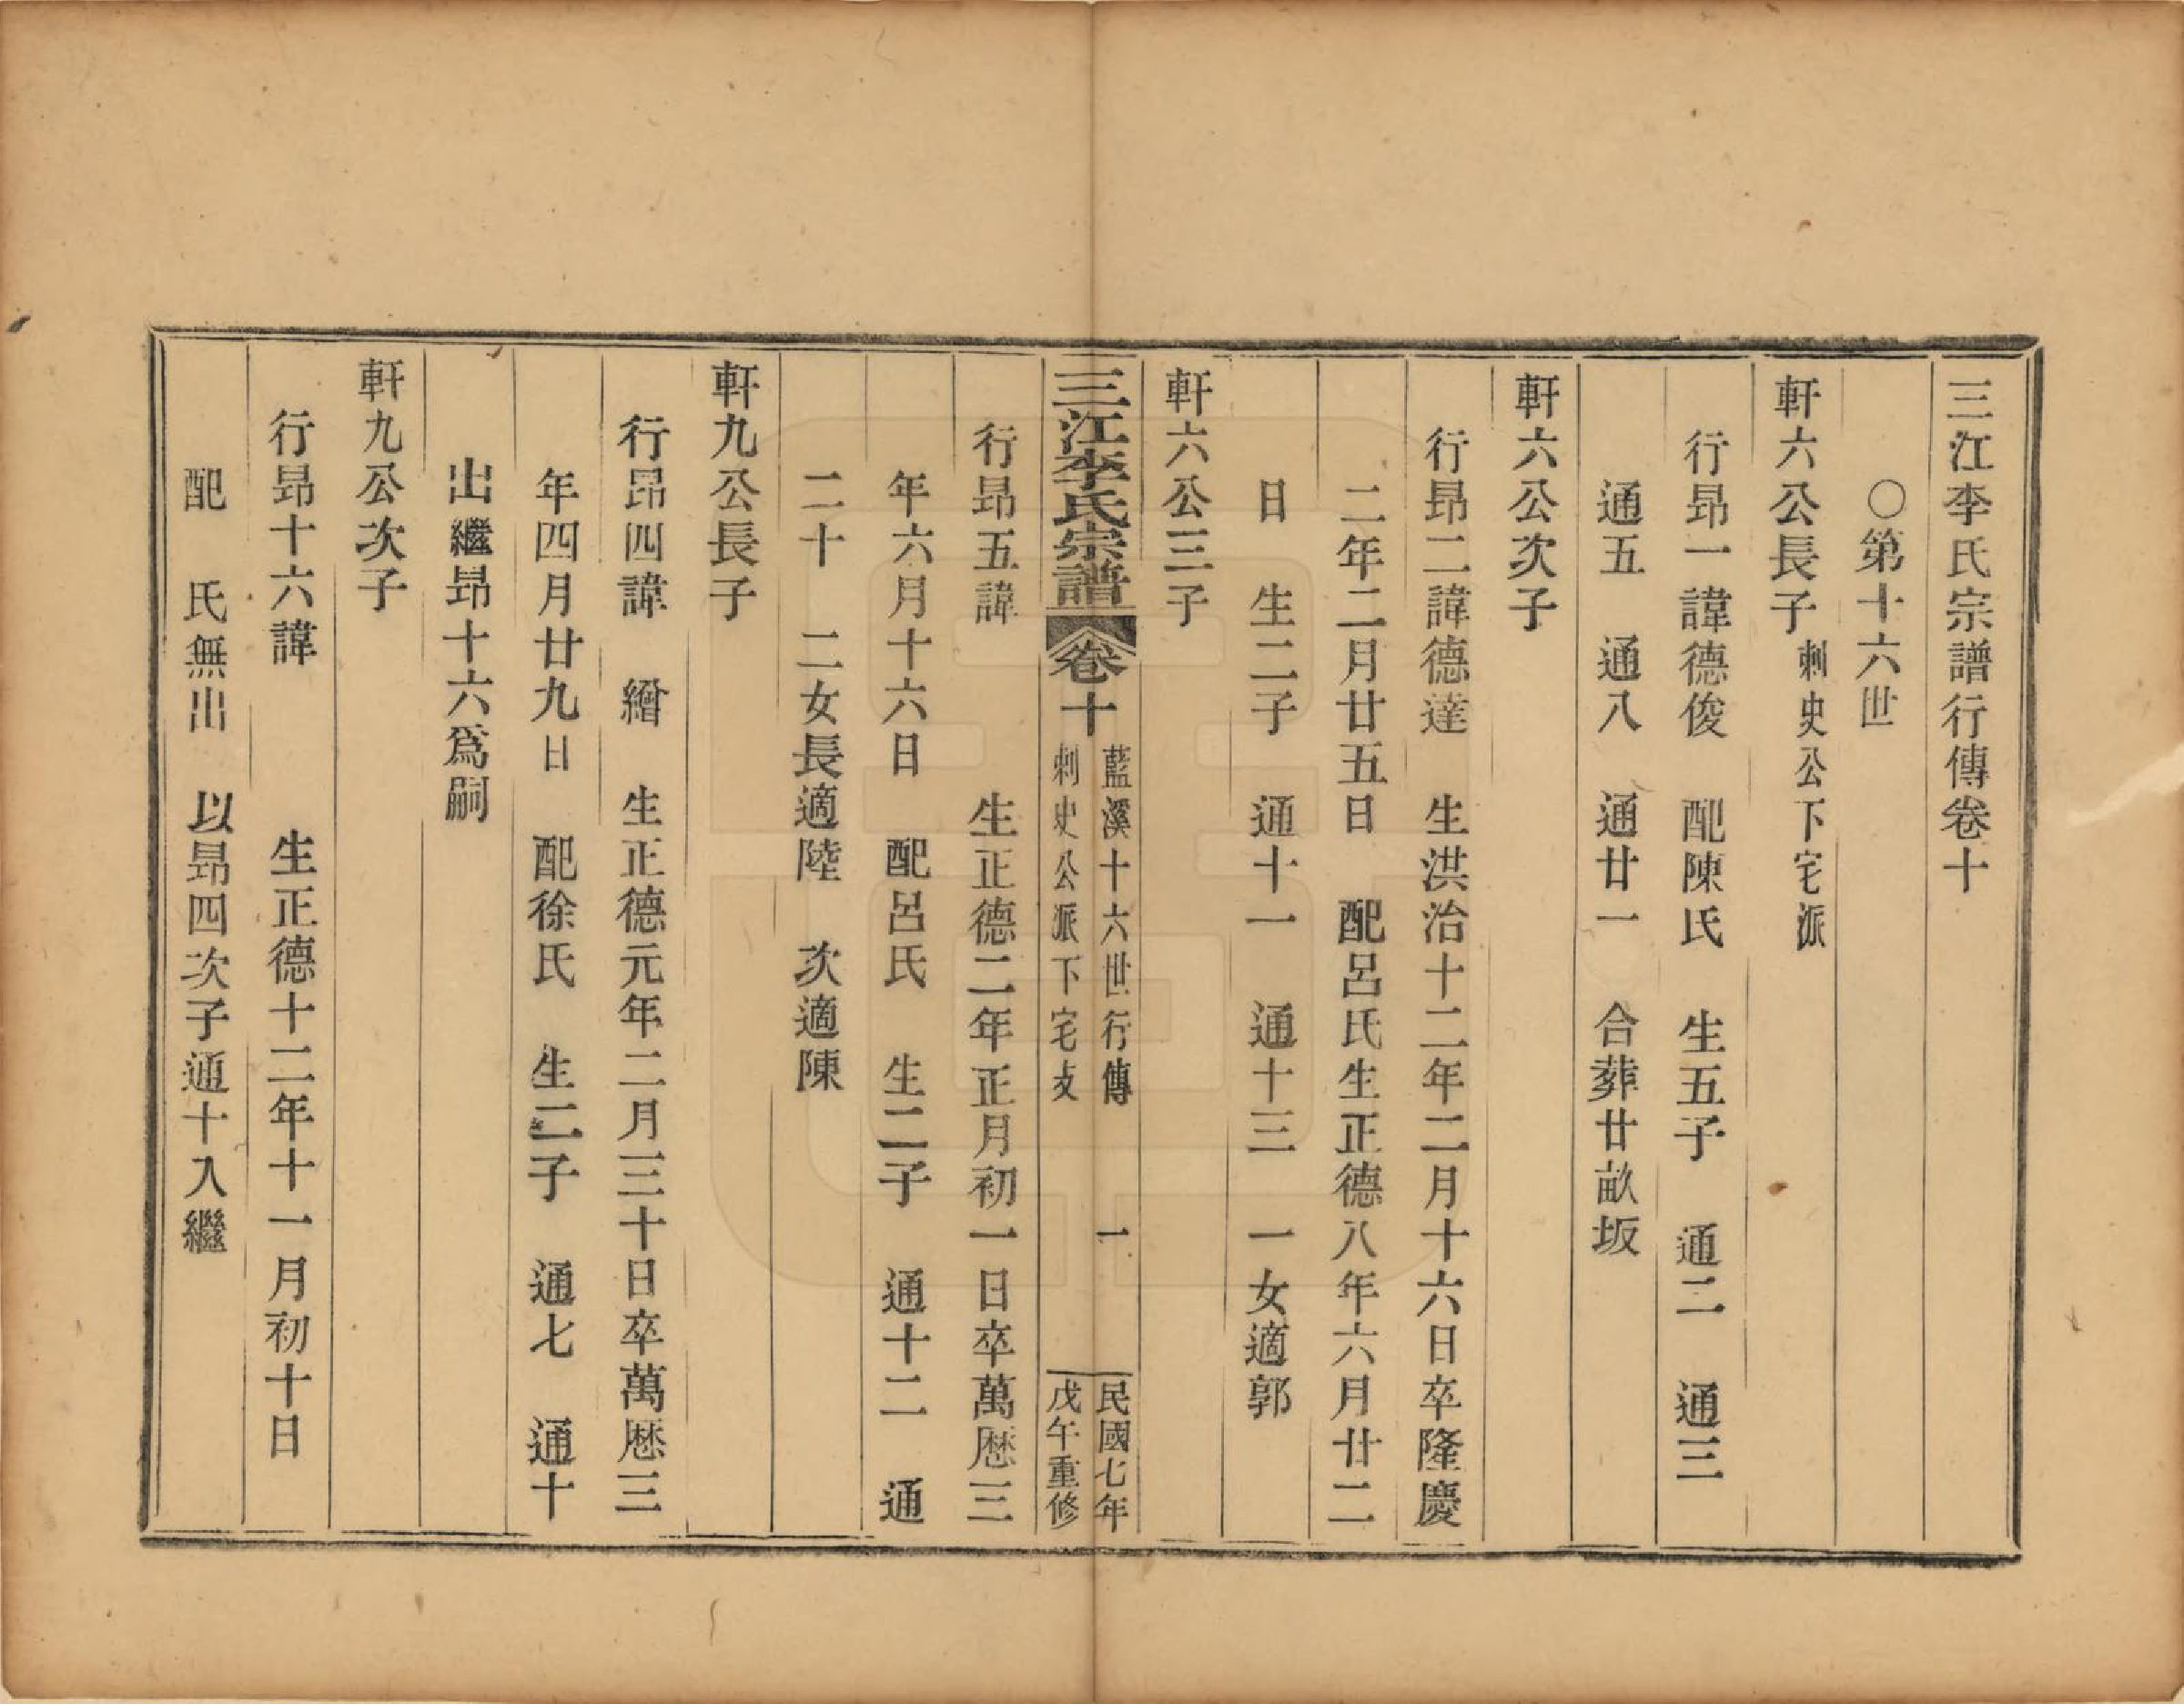 三江李氏宗譜行傳卷十
〇第十六世
軒六公長子 刺史公下宅派
行昂一諱德俊 配陳氏 生五子 通二 通三
通五 通八 通廿一 合葬廿畝坂
軒六公次子
行昂二諱德達 生洪治十二年二月十六日卒隆慶
二年二月廿五日 配呂氏生正德八年六月廿二
日 生二子 通十一 通十三 一女適郭
軒六公三子
三江李氏宗譜 卷十 藍溪十六世行傳 一 民國七年
刺史公派下宅支 戊午重修
行昂五諱 生正德二年正月初一日卒萬歷三
年六月十六日 配呂氏 生二子 通十二 通
二十 二女長適陸 次適陳
軒九公長子
行昂四諱 繒 生正德元年二月三十日卒萬歷三
年四月廿九日 配徐氏 生二子 通七 通十
出繼昂十六爲嗣
軒九公次子
行昂十六諱 生正德十二年十一月初十日
配 氏無出 以昂四次子通十入繼